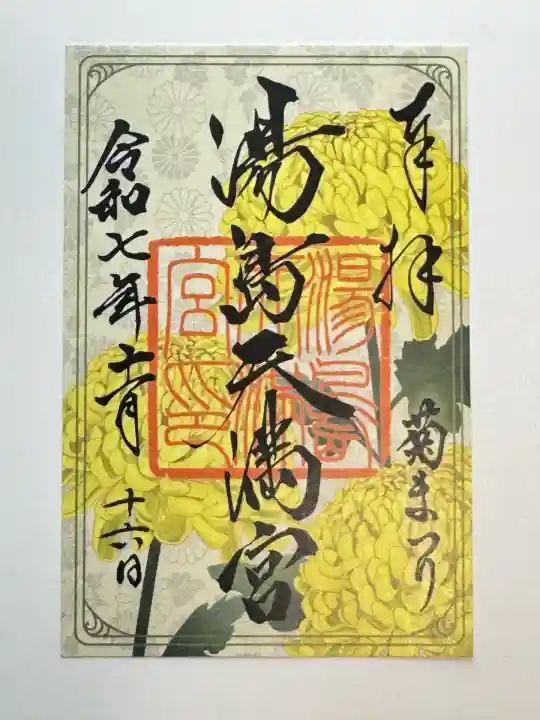 奉拝
菊まつり
湯島天満宮
湯島天満宮印
令和七年十一月
十六日